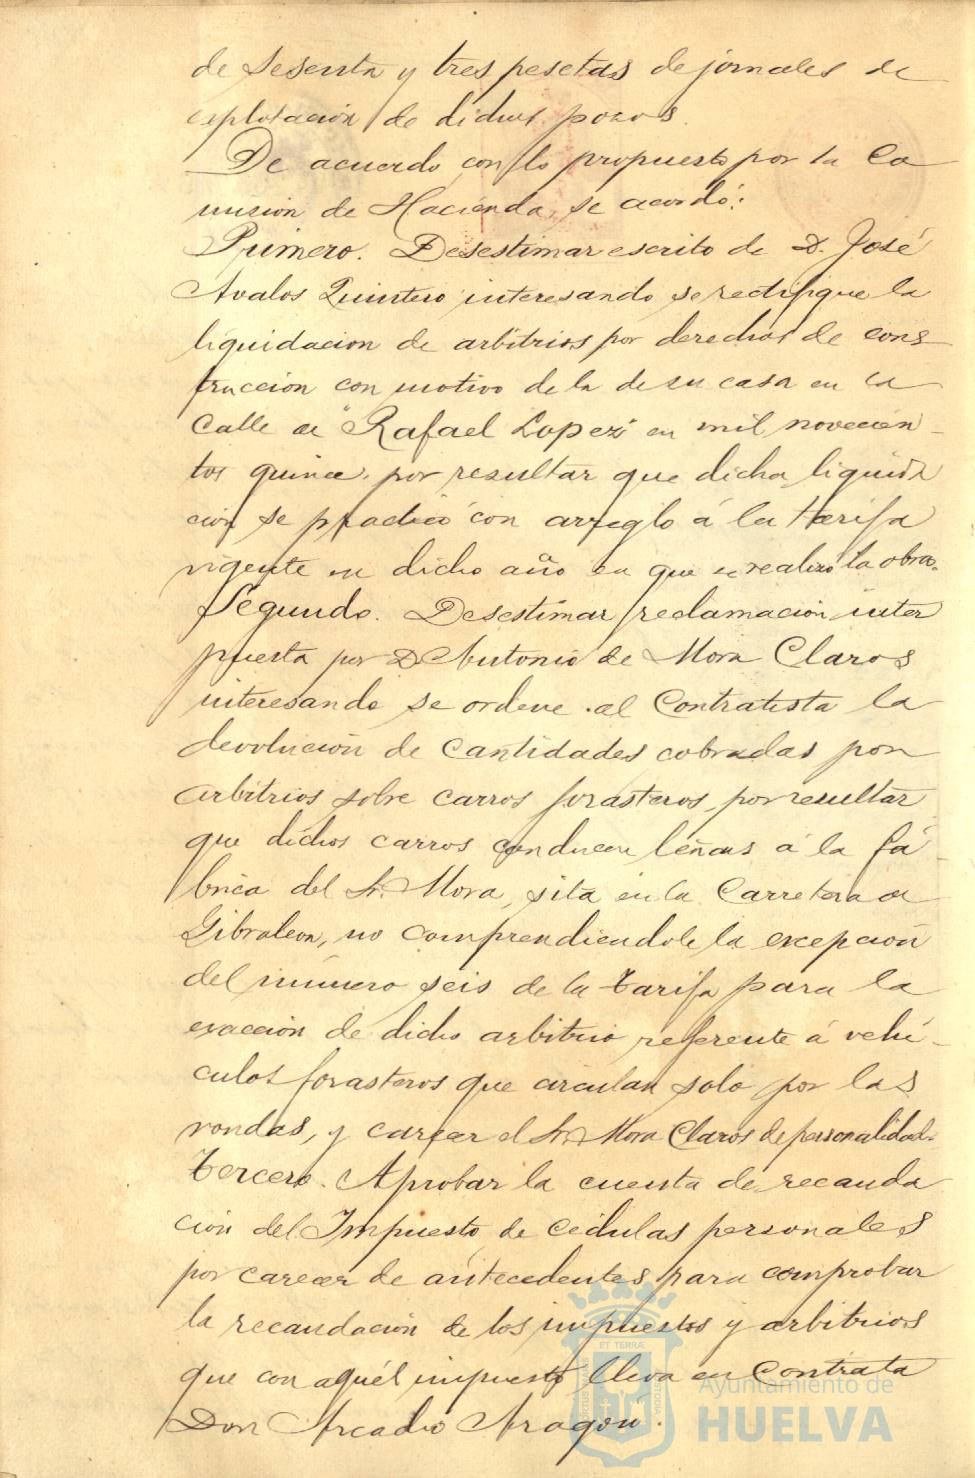 de sesenta y tres pesetas de jornales de
explotación de dichos pozos.
De acuerdo con lo propuesto por la Co
misión de Hacienda, se acordó:
Primero. Desestimar escrito de D. José
Avalos Quintero interesando se rectifique la
liquidacion de arbitrios por derechos de cons
trucción con motivo de la de su casa en la
Calle de "Rafael Lopez" en mil novecien-
tos quince, por resultar que dicha liquida
ción se practicó con arreglo á la tarifa
vigente en dicho año en que se realizó la obra.
Segundo. Desestimar reclamación inter
puesta por D. Antonio de Mora Claros
interesando se ordene al Contratista la
devolución de cantidades cobradas por
arbitrios sobre carros forasteros, por resultar
que dichos carros conducen leñas á la fá-
brica del Sr. Mora, sita en la Carretera de
Gibraleon, no comprendiendole la excepción
del número seis de la tarifa para la
exacción de dicho arbitrio referente á vehi-
culos forasteros que circulan solo por las
rondas, y carecer el Sr. Mora Claros de personalidad.
Tercero. Aprobar la cuenta de recauda
ción del Impuesto de cédulas personales
por carecer de antecedentes para comprobar
la recaudación de los impuestos y arbitrios
que con aquél impuesto lleva en Contrata
Don Arcadio Aragon.
ET TERRA
Ayuntamiento de
HUELVA